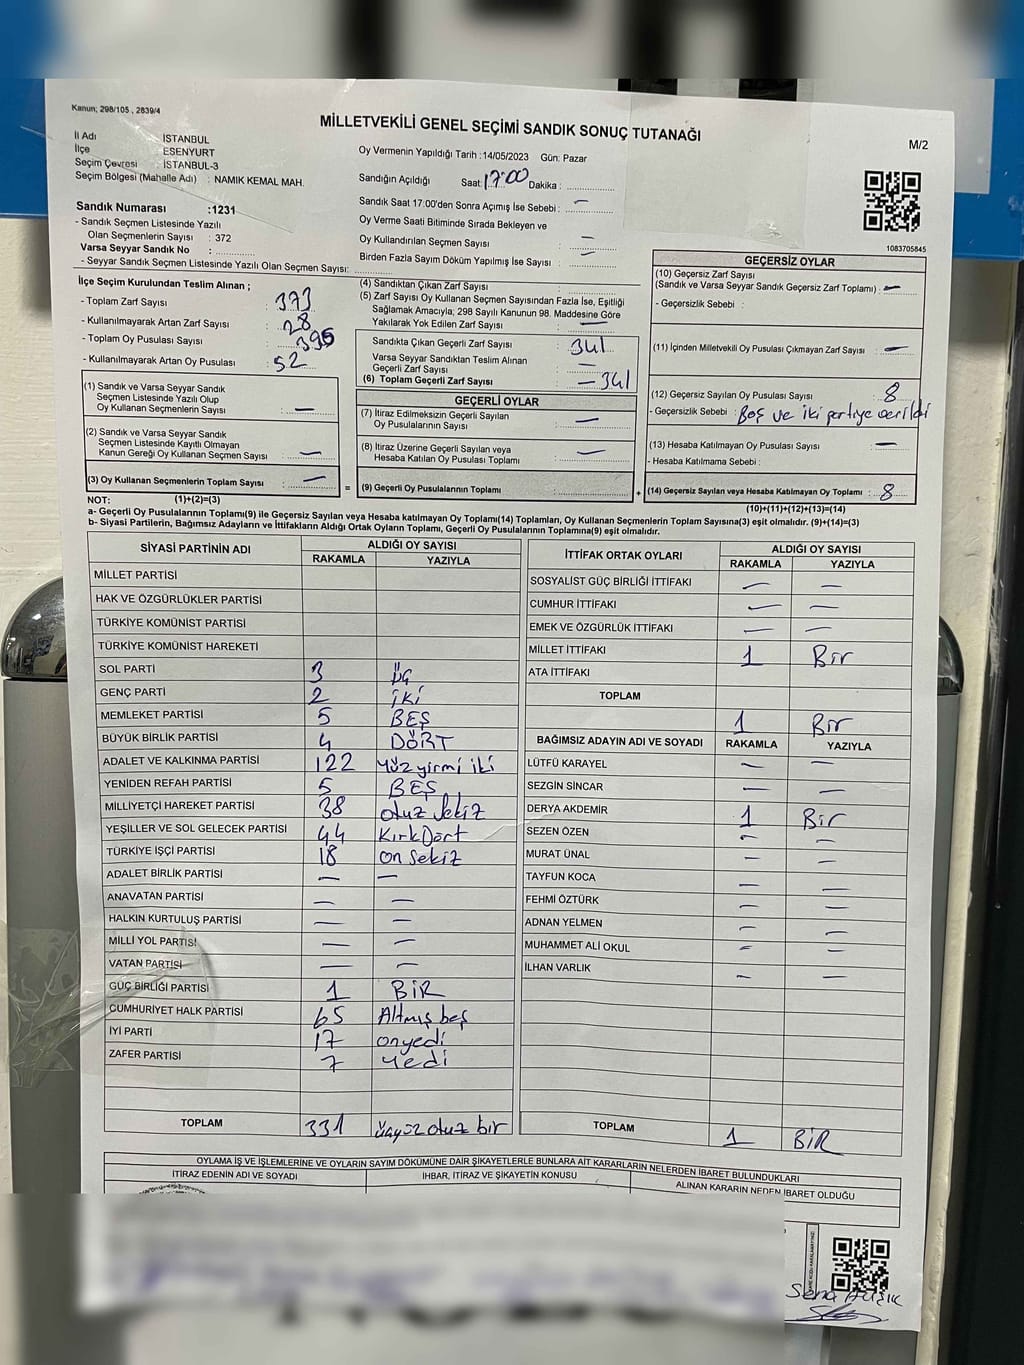 Kanun; 298/105 , 2839/4
MİLLETVEKİLİ GENEL SEÇİMİ SANDIK SONUÇ TUTANAĞI
M/2
İl Adı İSTANBUL
İlçe ESENYURT
Seçim Çevresi İSTANBUL-3
Seçim Bölgesi (Mahalle Adı) : NAMIK KEMAL MAH.
Sandık Numarası :1231
- Sandık Seçmen Listesinde Yazılı
Olan Seçmenlerin Sayısı : 372
Varsa Seyyar Sandık No :
- Seyyar Sandık Seçmen Listesinde Yazılı Olan Seçmen Sayısı:
Oy Vermenin Yapıldığı Tarih :14/05/2023 Gün: Pazar
Sandığın Açıldığı Saat: 17:00 Dakika :
Sandık Saat 17:00'den Sonra Açımış İse Sebebi : —
Oy Verme Saati Bitiminde Sırada Bekleyen ve
Oy Kullandırılan Seçmen Sayısı —
Birden Fazla Sayım Döküm Yapılmış İse Sayısı —
1083705845
İlçe Seçim Kurulundan Teslim Alınan ;
- Toplam Zarf Sayısı : 373
- Kullanılmayarak Artan Zarf Sayısı : 28
- Toplam Oy Pusulası Sayısı : 395
- Kullanılmayarak Artan Oy Pusulası : 52
(1) Sandık ve Varsa Seyyar Sandık
Seçmen Listesinde Yazılı Olup
Oy Kullanan Seçmenlerin Sayısı : —
(2) Sandık ve Varsa Seyyar Sandık
Seçmen Listesinde Kayıtlı Olmayan
Kanun Gereği Oy Kullanan Seçmen Sayısı : —
(3) Oy Kullanan Seçmenlerin Toplam Sayısı : —
(4) Sandıktan Çıkan Zarf Sayısı :
(5) Zarf Sayısı Oy Kullanan Seçmen Sayısından Fazla İse, Eşitliği
Sağlamak Amacıyla; 298 Sayılı Kanunun 98. Maddesine Göre
Yakılarak Yok Edilen Zarf Sayısı : —
Sandıkta Çıkan Geçerli Zarf Sayısı : 341
Varsa Seyyar Sandıktan Teslim Alınan
Geçerli Zarf Sayısı : —
(6) Toplam Geçerli Zarf Sayısı : — 341
GEÇERLİ OYLAR
(7) İtiraz Edilmeksizin Geçerli Sayılan
Oy Pusulalarının Sayısı : —
(8) İtiraz Üzerine Geçerli Sayılan veya
Hesaba Katılan Oy Pusulası Toplamı : —
= (9) Geçerli Oy Pusulalarının Toplamı :
GEÇERSİZ OYLAR
(10) Geçersiz Zarf Sayısı
(Sandık ve Varsa Seyyar Sandık Geçersiz Zarf Toplamı) : —
- Geçersizlik Sebebi :
(11) İçinden Milletvekili Oy Pusulası Çıkmayan Zarf Sayısı : —
(12) Geçersiz Sayılan Oy Pusulası Sayısı : 8
- Geçersizlik Sebebi : Boş ve iki partiye verildi
(13) Hesaba Katılmayan Oy Pusulası Sayısı : —
- Hesaba Katılmama Sebebi :
+ (14) Geçersiz Sayılan veya Hesaba Katılmayan Oy Toplamı : 8
NOT: (1)+(2)=(3)
(10)+(11)+(12)+(13)=(14)
a- Geçerli Oy Pusulalarının Toplamı(9) ile Geçersiz Sayılan veya Hesaba katılmayan Oy Toplamı(14) Toplamları, Oy Kullanan Seçmenlerin Toplam Sayısına(3) eşit olmalıdır. (9)+(14)=(3)
b- Siyasi Partilerin, Bağımsız Adayların ve İttifakların Aldığı Ortak Oyların Toplamı, Geçerli Oy Pusulalarının Toplamına(9) eşit olmalıdır.
SİYASİ PARTİNİN ADI ALDIĞI OY SAYISI
RAKAMLA YAZIYLA
MİLLET PARTİSİ
HAK VE ÖZGÜRLÜKLER PARTİSİ
TÜRKİYE KOMÜNİST PARTİSİ
TÜRKİYE KOMÜNİST HAREKETİ
SOL PARTİ 3 üç
GENÇ PARTİ 2 iki
MEMLEKET PARTİSİ 5 BEŞ
BÜYÜK BİRLİK PARTİSİ 4 DÖRT
ADALET VE KALKINMA PARTİSİ 122 yüz yirmi iki
YENİDEN REFAH PARTİSİ 5 BEŞ
MİLLİYETÇİ HAREKET PARTİSİ 38 otuz sekiz
YEŞİLLER VE SOL GELECEK PARTİSİ 44 Kırk Dört
TÜRKİYE İŞÇİ PARTİSİ 18 on sekiz
ADALET BİRLİK PARTİSİ — —
ANAVATAN PARTİSİ — —
HALKIN KURTULUŞ PARTİSİ — —
MİLLİ YOL PARTİSİ — —
VATAN PARTİSİ — —
GÜÇ BİRLİĞİ PARTİSİ 1 BİR
CUMHURİYET HALK PARTİSİ 65 Altmış beş
İYİ PARTİ 17 onyedi
ZAFER PARTİSİ 7 yedi
TOPLAM 331 üçyüz otuz bir
İTTİFAK ORTAK OYLARI ALDIĞI OY SAYISI
RAKAMLA YAZIYLA
SOSYALİST GÜÇ BİRLİĞİ İTTİFAKI — —
CUMHUR İTTİFAKI — —
EMEK VE ÖZGÜRLÜK İTTİFAKI — —
MİLLET İTTİFAKI 1 Bir
ATA İTTİFAKI
TOPLAM 1 Bir
BAĞIMSIZ ADAYIN ADI VE SOYADI RAKAMLA YAZIYLA
LÜTFÜ KARAYEL — —
SEZGİN SİNCAR — —
DERYA AKDEMİR 1 Bir
SEZEN ÖZEN — —
MURAT ÜNAL — —
TAYFUN KOCA — —
FEHMİ ÖZTÜRK — —
ADNAN YELMEN — —
MUHAMMET ALİ OKUL — —
İLHAN VARLIK — —
TOPLAM 1 BİR
OYLAMA İŞ VE İŞLEMLERİNE VE OYLARIN SAYIM DÖKÜMÜNE DAİR ŞİKAYETLERLE BUNLARA AİT KARARLARIN NELERDEN İBARET BULUNDUKLARI
İTİRAZ EDENİN ADI VE SOYADI İHBAR, İTİRAZ VE ŞİKAYETİN KONUSU ALINAN KARARIN NEDEN İBARET OLDUĞU